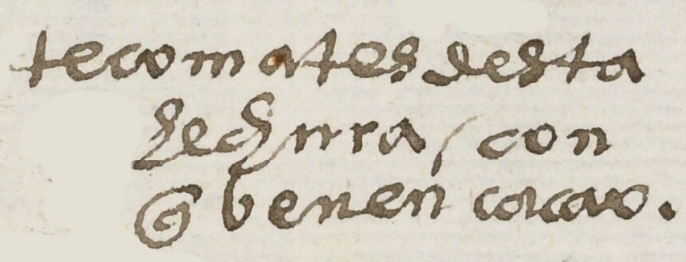 tecomates desta
hechura, con
q̃ beven cacao.